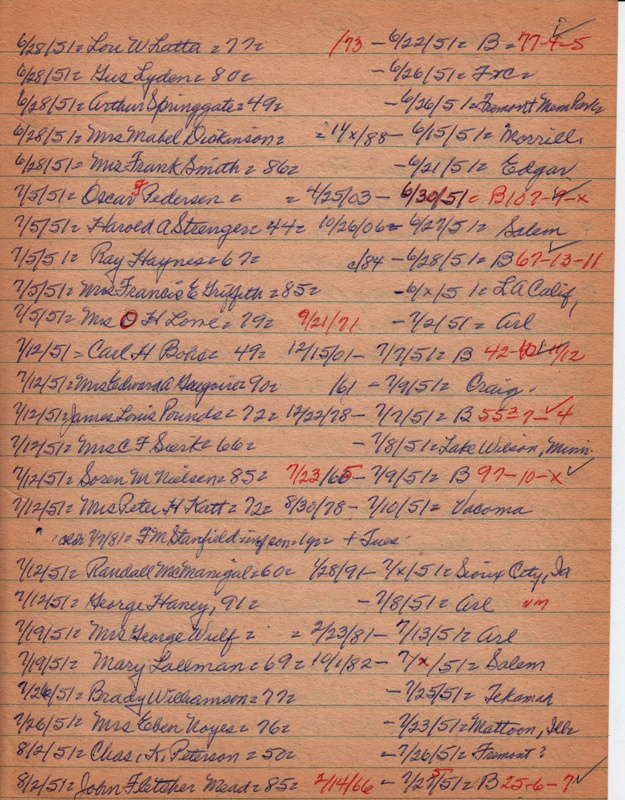 6/28/51 = Lori W Latta = 77 = /73 - 6/22/51 = B = 77-4-5
6/28/51 = Gus Lyden = 80 = - 6/26/51 = F x C =
6/28/51 = Arthur Springgate = 49 = - 6/26/51 = Fremont Mem Park
6/28/51 = Mrs Mabel Dickinson = = 1/x/88 - 6/15/51 = Morrill.
6/28/51 = Mrs Frank Smith = 86 = - 6/21/51 = Edgar
7/5/51 = Oscar Pedersen = = 4/25/03 - 6/30/51 = B 107-9-x
7/5/51 = Harold A Strenger = 44 = 10/26/06 = 6/27/51 = Salem
7/5/51 = Ray Haynes = 67 = c/84 - 6/28/51 = B 67-13-11
7/5/51 = Mrs Francis E Griffith = 85 = - 6/x/51 = L A Calif,
7/5/51 = Mrs O H Lowe = 79 = 9/21/71 - 7/2/51 = Arl
7/12/51 = Carl H Bohs = 49 = 12/15/01 - 7/7/51 = B 42- 11/12
7/12/51 = Mrs Edward A = 90 = /61 - 7/9/51 = Craig.
7/12/51 = James Louis Pounds = 72 = 12/22/78 - 7/7/51 = B 55 = 7-4
7/12/51 = Mrs C F = 66 = - 7/8/51 = Lake Wilson, Minn.
7/12/51 = Soren M Nielsen = 85 = 7/23/65 - 7/9/51 = B 97-10-x
7/12/51 = Mrs Peter H Katt = 72 = 8/30/78 - 7/10/51 = Vacoma
7/7/81 = F M Stanfield 1 yr + Tues.
7/12/51 = Randall McManigal = 60 = 1/28/91 - 7/x/51 = Sioux City, Ia
7/12/51 = George Haney, 91 = - 7/8/51 = Arl vm
7/19/51 = Mrs George Wulf = = 2/23/81 - 7/13/51 = Arl
7/19/51 = Mary Lallman = 69 = 10/1/82 - 7/x/51 = Salem
7/26/51 = Brady Williamson = 77 = - 7/25/51 = Tekamah
7/26/51 = Mrs Eben Noyes = 76 = - 7/23/51 = Mattoon, Ills
8/2/51 = Chas, K. Peterson = 50 = - 7/26/51 = Fremont?
8/2/51 = John Fletcher Mead = 85 = 2/14/66 - 7/27/51 = B 25-6-7